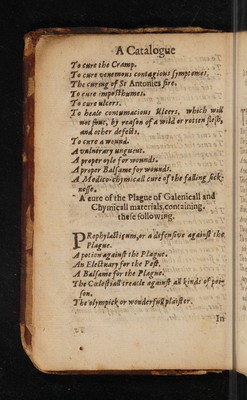 A Catalogue
To cure the Cramp.
To cure venemous contagious symptomes.
The curing of St Antonies fire.
To cure imposthumes.
To cure ulcers.
To heale contumacious Ulcers, which will
not shut, by reason of a wild or rotten flesh,
and other defects.
To cure a wound.
A vulnerary unguent.
A proper oyle for wounds.
A proper Balsame for wounds.
A Medico-chymicall cure of the falling sick-
nesse.
A cure of the Plague of Galenicall and
Chymicall materials, containing,
these following.
PRophylactiqum, or a defensive against the
Plague.
A potion against the Plague.
An Electuary for the Pest.
A Balsame for the Plague.
The Cœlestiall treacle against all kinds of poy-
son.
The olympick or wonderfull plaister.
In